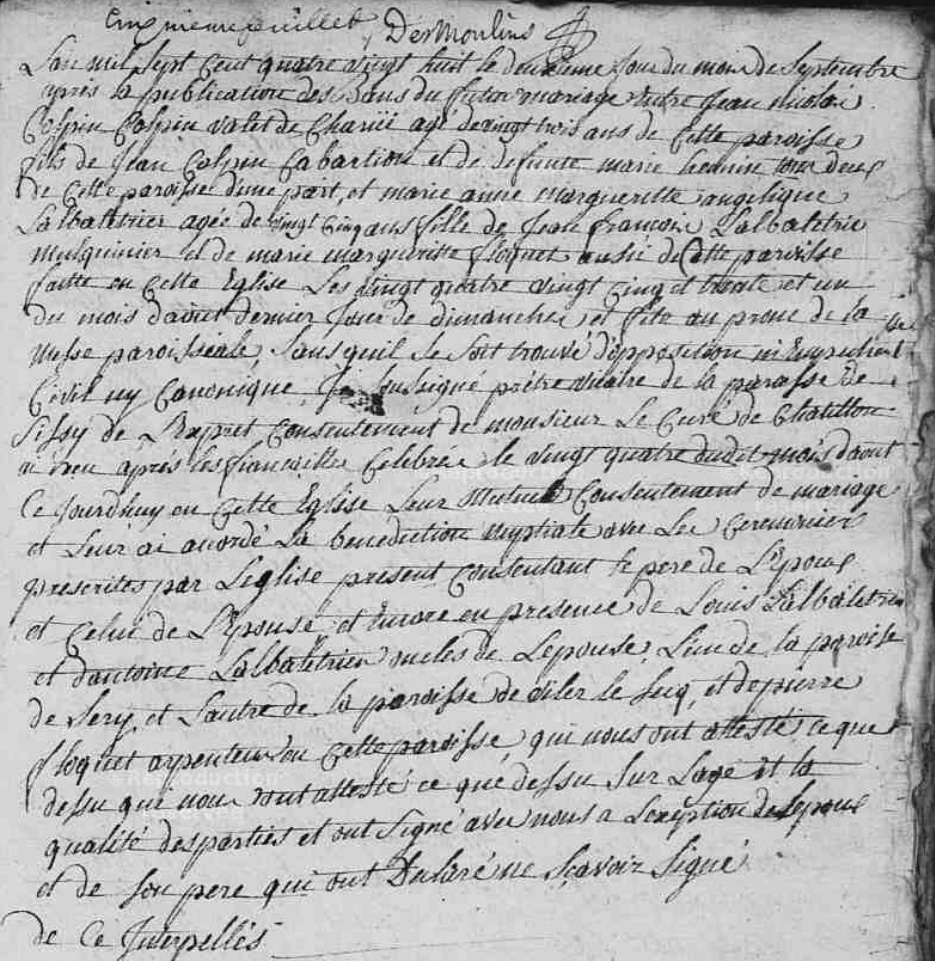 Cinquieme feuillet DesMoulins
L'an mil sept cent quatre vingt huit le deuxieme jour du mois de Septembre
après la publication des Bans du futur mariage entre Jean nicolas
Colpin Colpin valet de Charüe agé de vingt trois ans de cette paroisse
fils de Jean Colpin Cabartier et de defunte marie hennine tous deux
de cette paroisse d'une part, et marie anne margueritte angelique
Lalbaletrier agée de vingt cinq ans fille de Jean francois Lalbaletrie
mulquinier et de marie marguerite floquet aussi de Cette paroisse
faitte en cette Eglise Les vingt quatre vingt cinq et trente et un
du mois d'aout dernier Jour de dimanche et fete au prone de la
Messe paroissiale, sans quil se soit trouvé d'opposition ni Empechent
Civil ny canonique, Je soussigné prêtre vicaire de la paroisse de
Sissy de L'expret consentement de monsieur Le Curé de Chatillon
ai reçu après les fiancailles Celebrées le vingt quatre dudit mois d'aout
Ce jourdhuy en cette Eglise Leur Mutuel Consentement de mariage
et Leur ai accordé La benediction nuptiale avec Les Ceremonies
prescrites par L'eglise present Consentant le pere de L'epoux
et Celui de L'epouse et encore en presence de Louis Lalbaletrier
et d'antoine Lalbaletrier oncles de L'epouse, L'un de la paroisse
de Sery et L'autre de la paroisse de viler le secq, et de pierre
floquet arpenteur en Cette paroisse, qui nous ont attesté ce que
dessu qui nous ont attesté ce que dessu sur L'age et la
qualité des parties et ont signé avec nous a L'exception de L'epoux
et de son pere qui ont Declaré ne sçavoir signé
de ce Interpellés